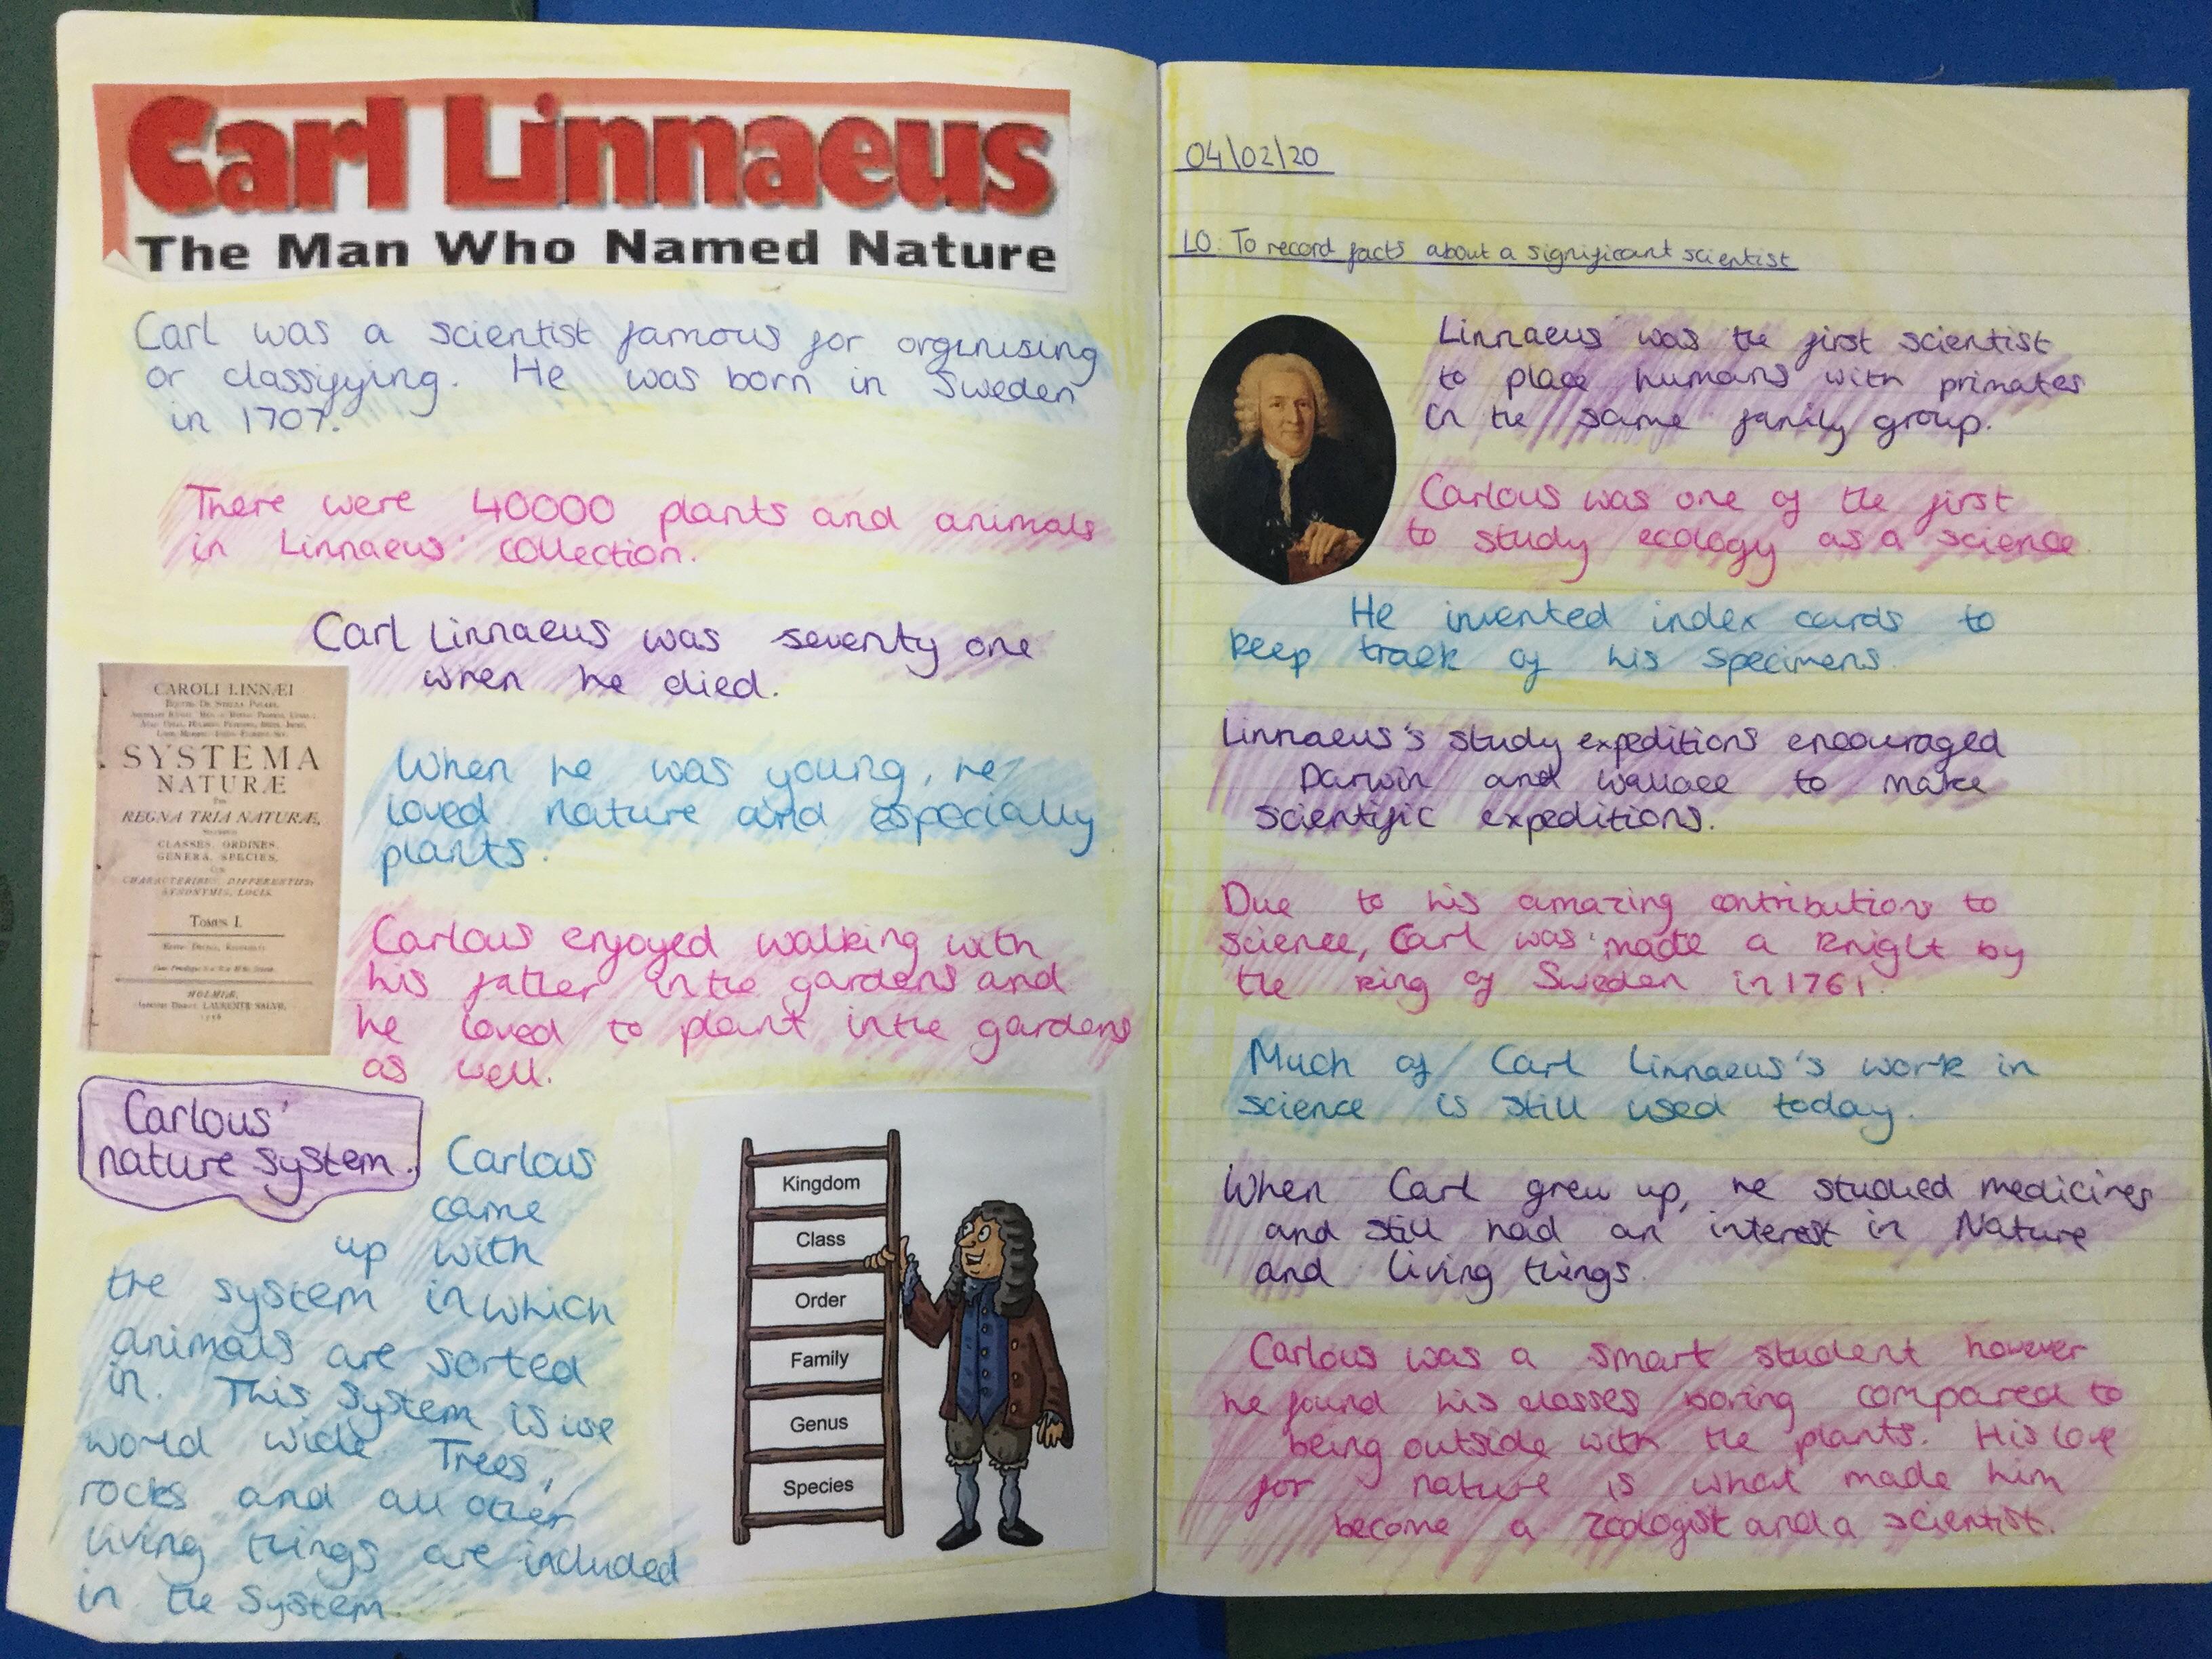 Carl Linnaeus
The Man Who Named Nature
Carl was a scientist famous for orginising
or classifying. He was born in Sweden
in 1707.
There were 40000 plants and animals
in Linnaeus' collection.
Carl Linnaeus was seventy one
when he died.
CAROLI LINNÆI
SYSTEMA
NATURÆ
PER
REGNA TRIA NATURÆ,
CLASSES, ORDINES,
GENERA, SPECIES,
CUM
CHARACTERIBUS, DIFFERENTIIS,
SYNONYMIS, LOCIS.
Tomus I.
HOLMIÆ,
LAURENTII SALVII,
When he was young, he
loved nature and especially
plants.
Carlous enjoyed walking with
his father in the gardens and
he loved to plant in the gardens
as well.
Carlous'
nature system.
Carlous
came
up with
the system in which
animals are sorted
in. This system is use
world wide Trees,
rocks and all other
living things are included
in the system.
Kingdom
Class
Order
Family
Genus
Species
04\02\20
LO: To record facts about a significant scientist
Linnaeus was the first scientist
to place humans with primates
in the same family group.
Carlous was one of the first
to study ecology as a science
He invented index cards to
keep track of his specimens.
Linnaeus's study expeditions encouraged
Darwin and Wallace to make
scientific expeditions.
Due to his amazing contributions to
science, Carl was made a knight by
the king of Sweden in 1761.
Much of Carl Linnaeus's work in
science is still used today.
When Carl grew up, he studied medicines
and still had an interest in Nature
and living things.
Carlous was a smart student however
he found his classes boring compared to
being outside with the plants. His love
for nature is what made him
become a zoologist and a scientist.